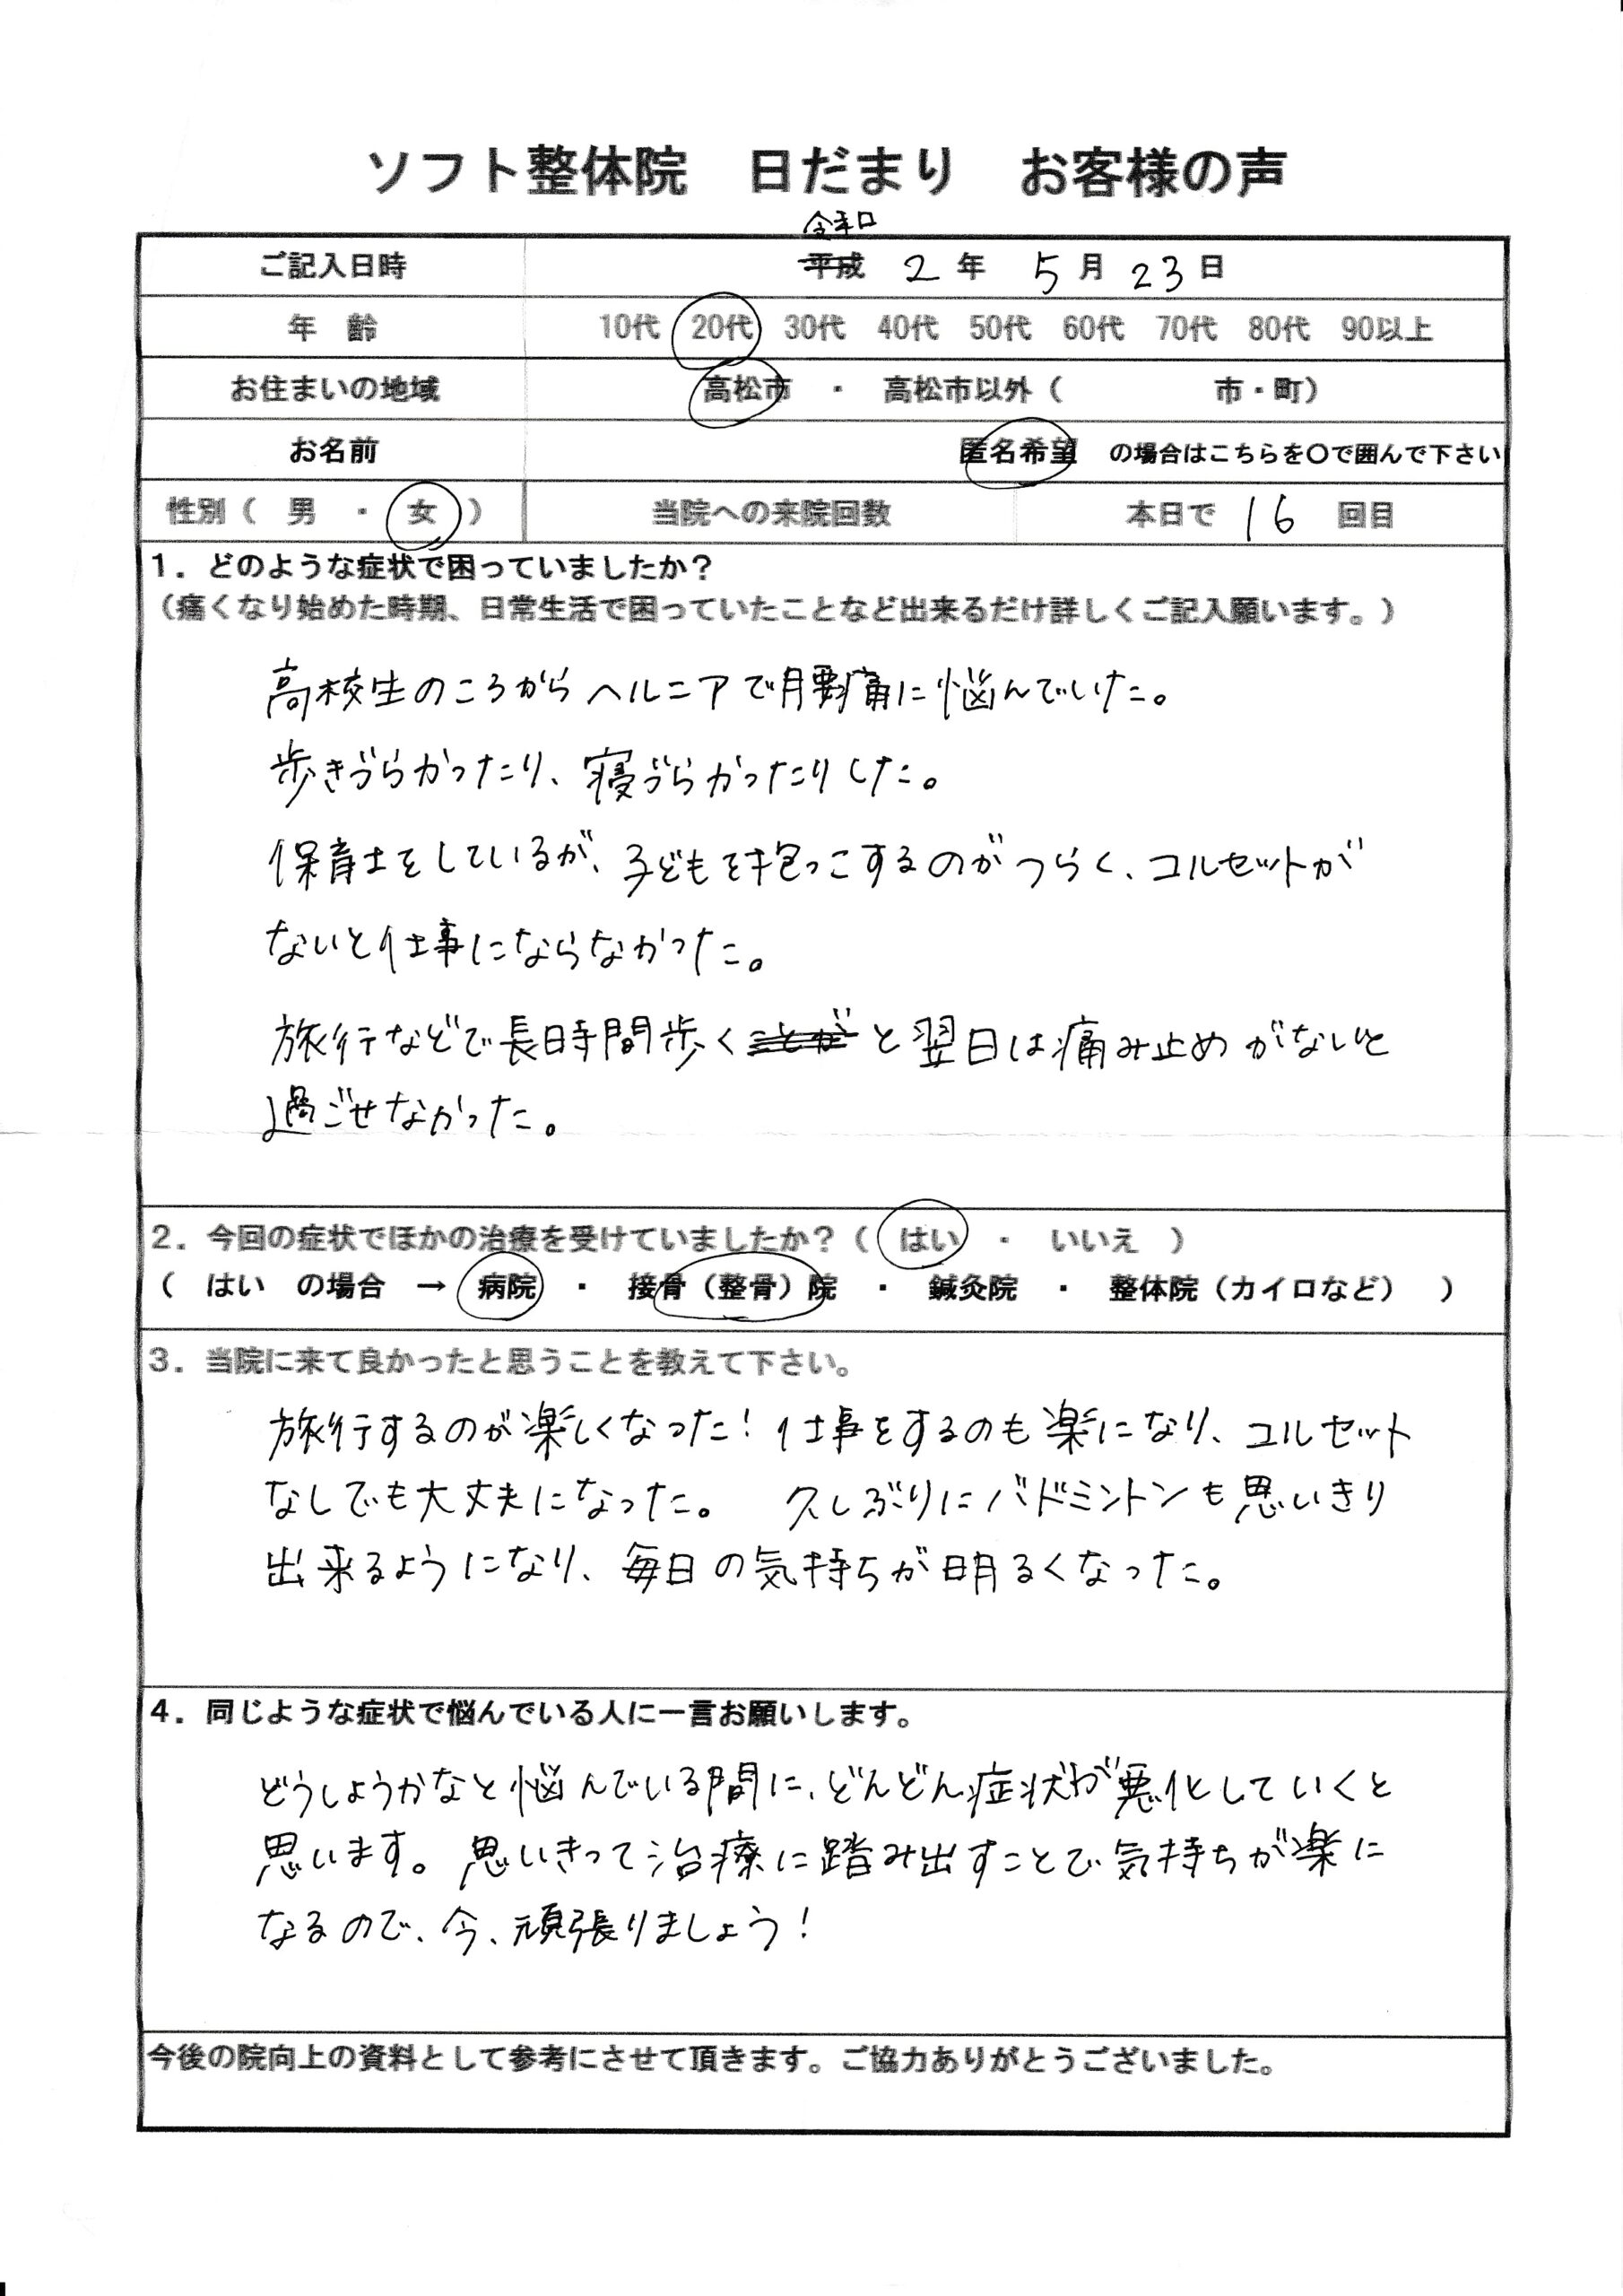 ソフト整体院　日だまり　お客様の声
令和
ご記入日時　平成 2 年 5 月 23 日
年　齢　10代 20代 30代 40代 50代 60代 70代 80代 90以上
お住まいの地域　高松市 ・ 高松市以外（　　　　　市・町）
お名前　匿名希望　の場合はこちらを〇で囲んで下さい
性別（　男　・　女　）　当院への来院回数　本日で 16 回目
1．どのような症状で困っていましたか？
（痛くなり始めた時期、日常生活で困っていたことなど出来るだけ詳しくご記入願います。）
高校生のころからヘルニアで腰痛に悩んでいた。
歩きづらかったり、寝づらかったりした。
保育士をしているが、子どもを抱っこするのがつらく、コルセットが
ないと仕事にならなかった。
旅行などで長時間歩くことがと翌日は痛み止めがないと
過ごせなかった。
2．今回の症状でほかの治療を受けていましたか？（　はい　・　いいえ　）
（　はい　の場合　→　病院　・　接骨（整骨）院　・　鍼灸院　・　整体院（カイロなど）　）
3．当院に来て良かったと思うことを教えて下さい。
旅行するのが楽しくなった！仕事をするのも楽になり、コルセット
なしでも大丈夫になった。　久しぶりにバドミントンも思いきり
出来るようになり、毎日の気持ちが明るくなった。
4．同じような症状で悩んでいる人に一言お願いします。
どうしようかなと悩んでいる間に、どんどん症状が悪化していくと
思います。思いきって治療に踏み出すことで気持ちが楽に
なるので、今、頑張りましょう！
今後の院向上の資料として参考にさせて頂きます。ご協力ありがとうございました。